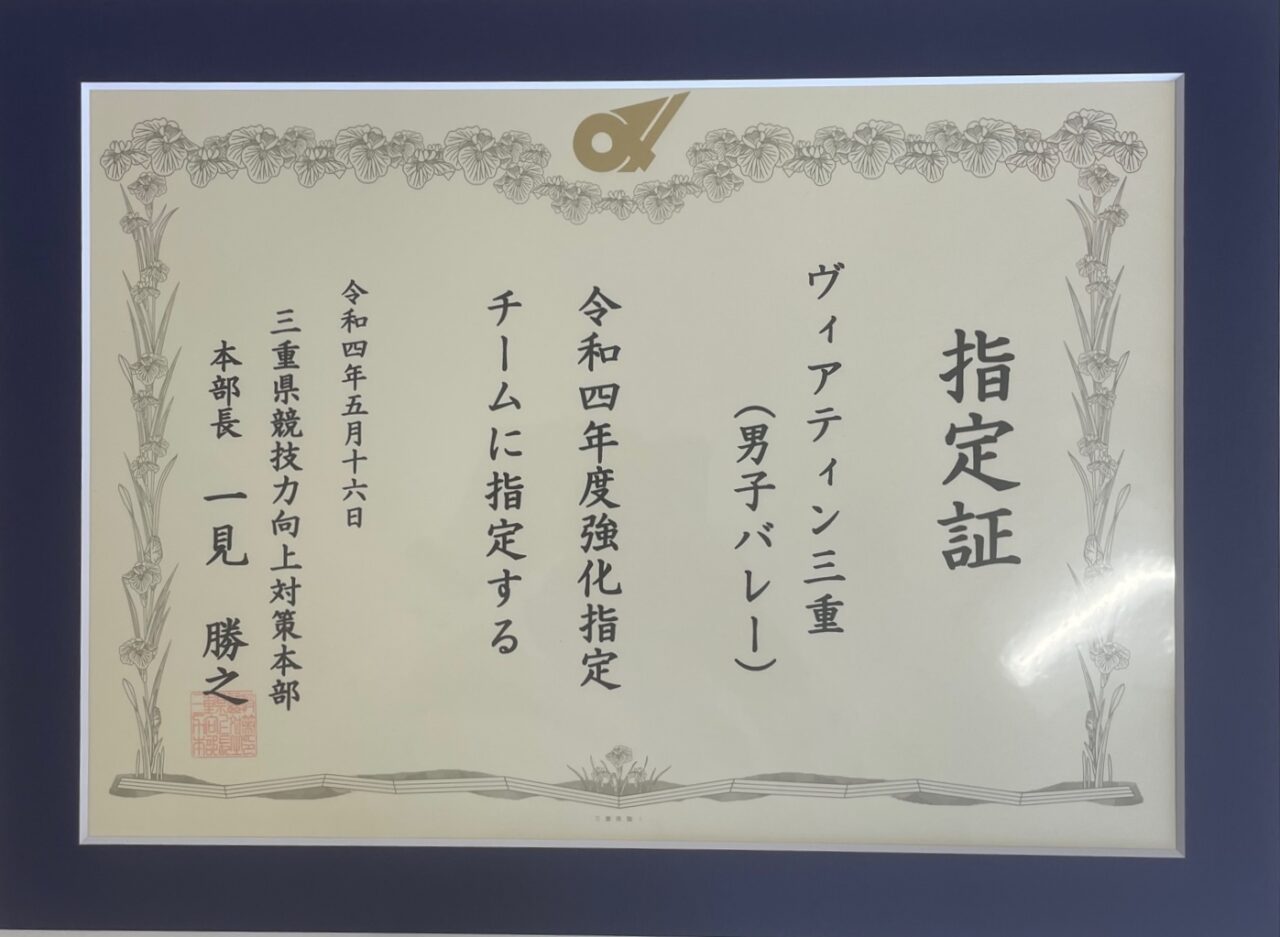 指定証
ヴィアティン三重
(男子バレー)
令和四年度強化指定
チームに指定する
令和四年五月十六日
三重県競技力向上対策本部
本部長 一見 勝之